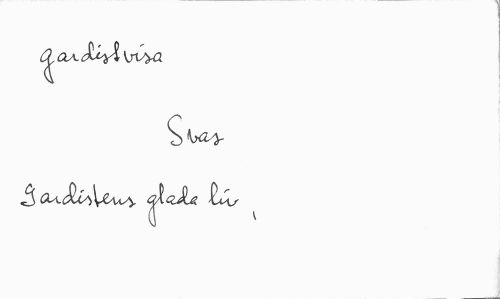 gardistvisa
Svas
Gardistens glada liv,